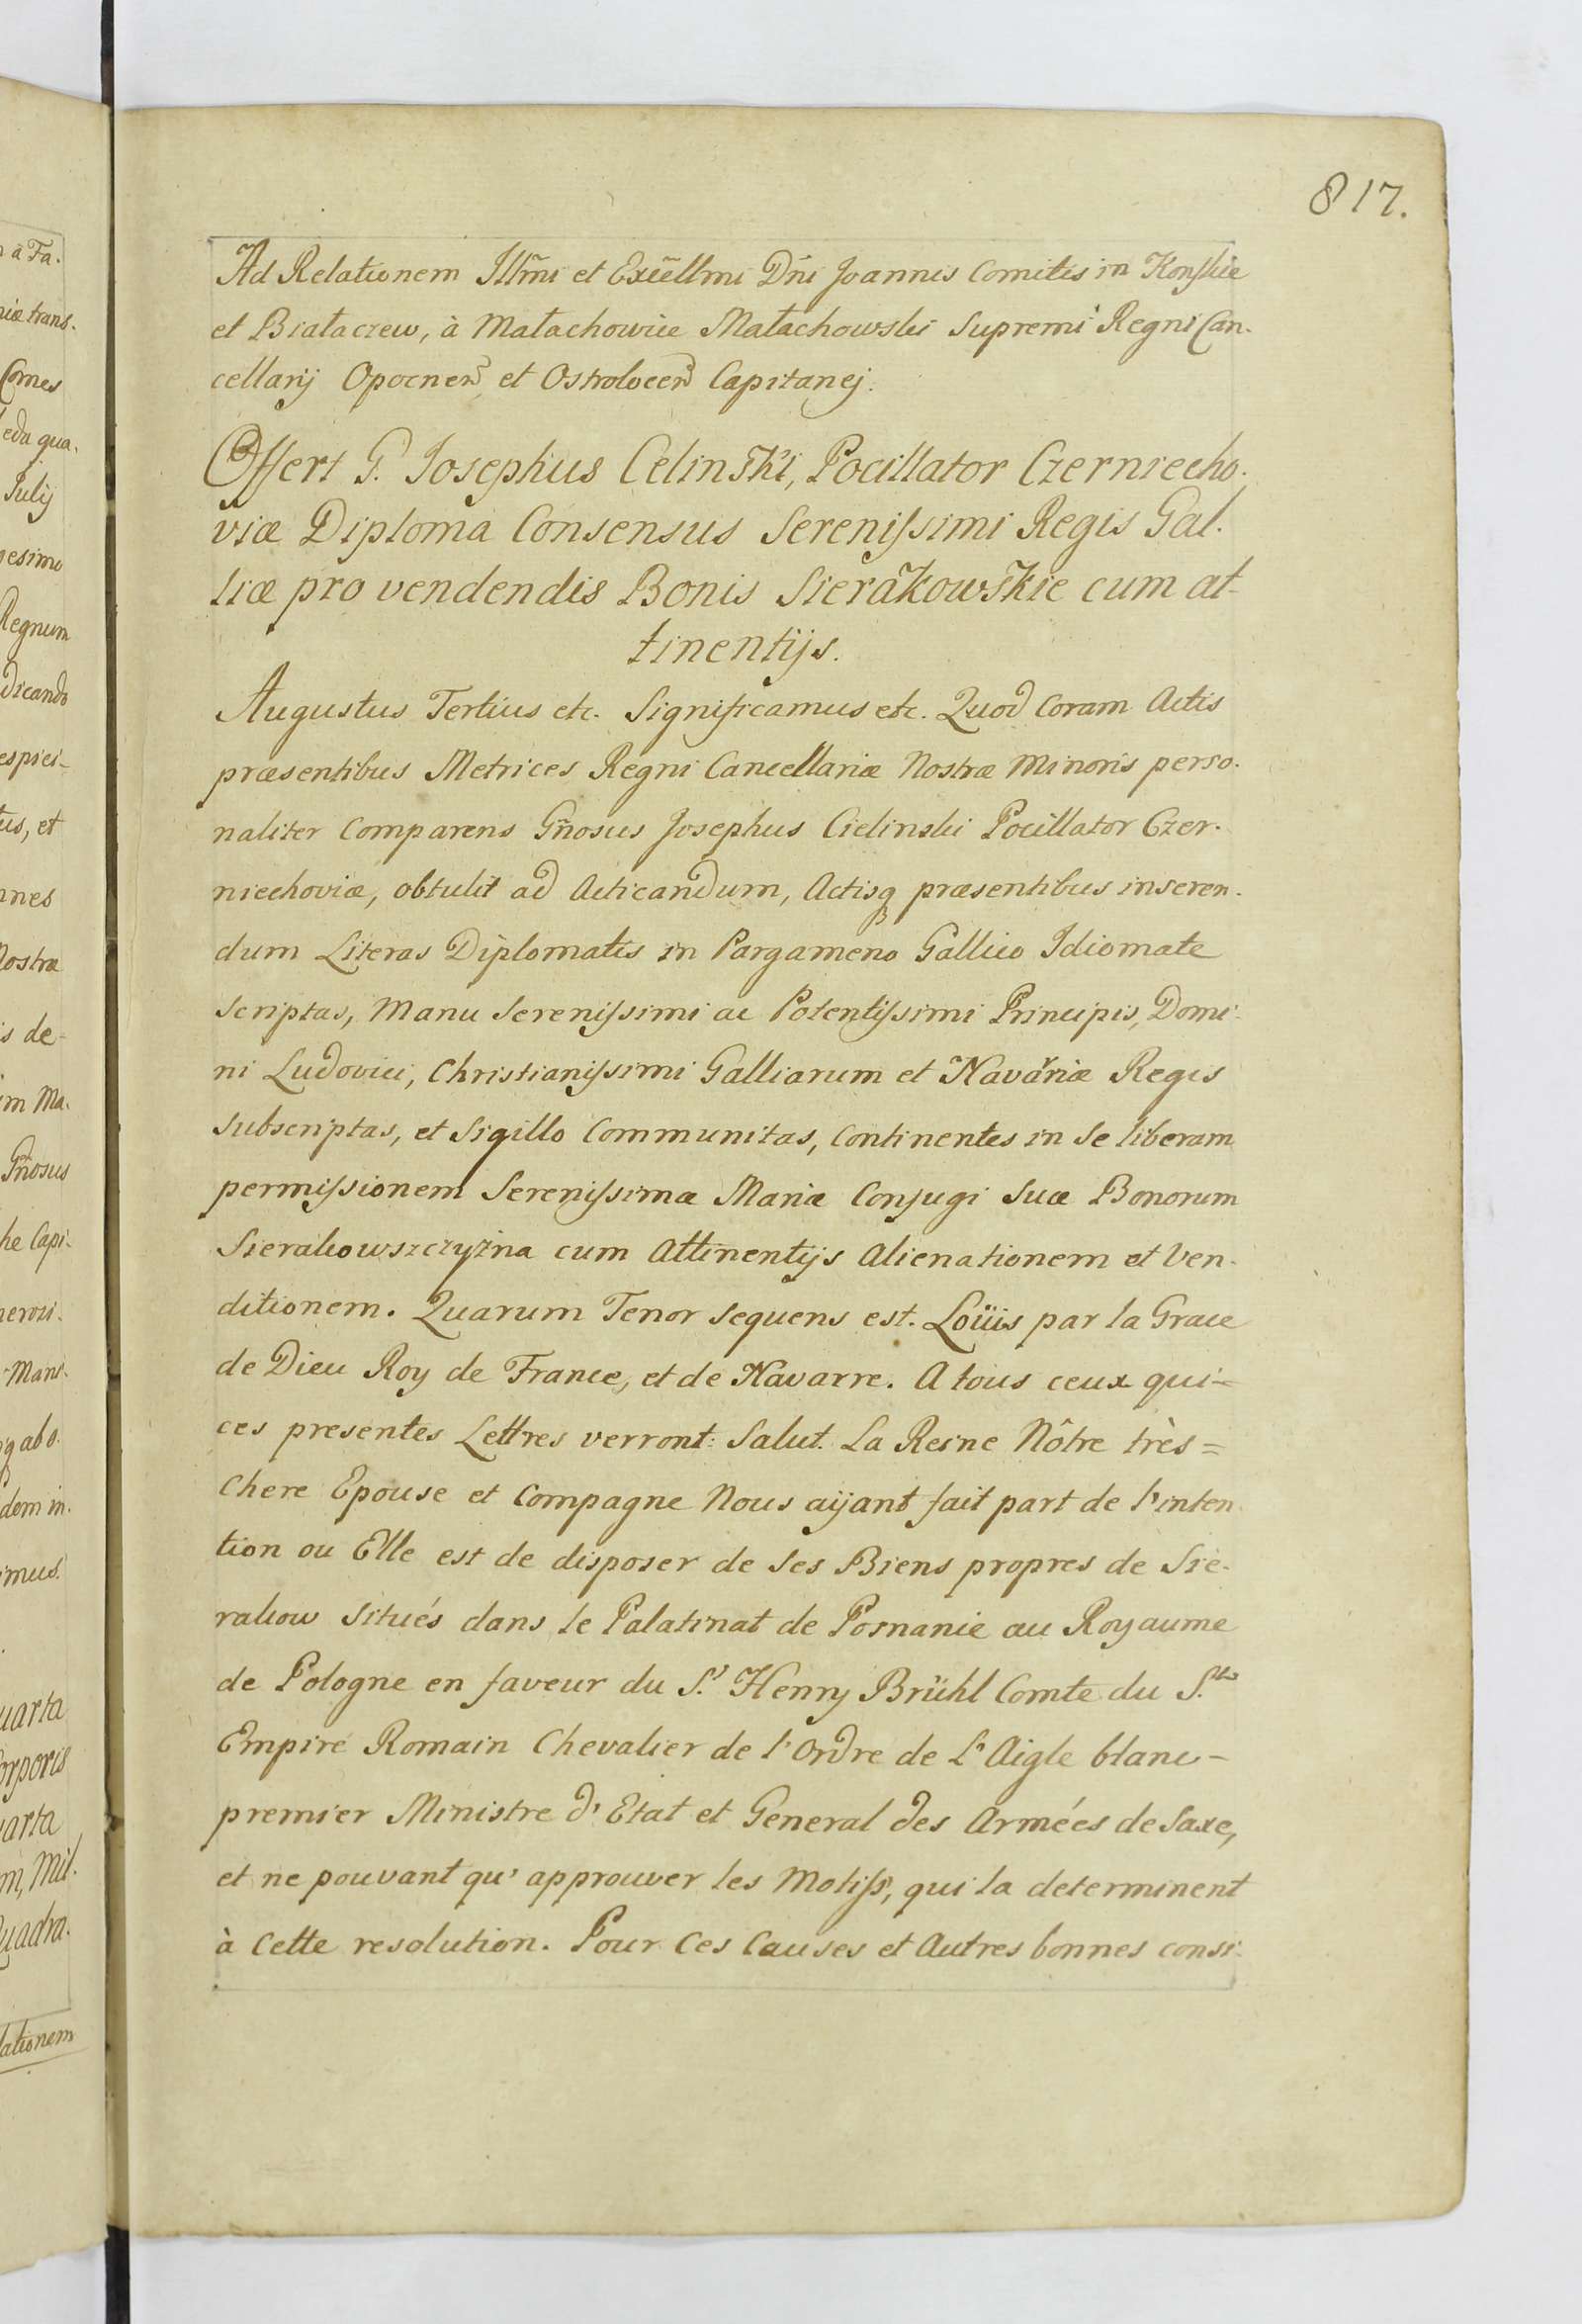 817.
Ad Relationem Illm̃i et Exc̃ellmi Dñi Joannis Comitis in Konskie
et Białaczew, à Małachowice Małachowski Supremi Regni Can-
cellarij Opocnen̄, et Ostrolecen̄ Capitanej.
Offert G. Josephus Celinski, Pocillator Czerniecho-
viæ Diploma Consensus Serenissimi Regis Gal-
liæ pro vendendis Bonis Sierakowskie cum at-
tinentijs.
Augustus Tertius etc. Significamus etc. Quod Coram Actis
præsentibus Metrices Regni Cancellariæ Nostræ Minoris perso-
naliter Comparens Gñosus Josephus Cielinski Pocillator Czer-
niechoviæ, obtulit ad Acticandum, Actisq præsentibus inseren-
dum Literas Diplomatis in Pargameno Gallico Idiomate
scriptas, Manu Serenissimi ac Potentissimi Principis, Domi-
ni Ludovici, Christianissimi Galliarum et Navariæ Regis
subscriptas, et Sigillo Communitas, Continentes in se liberam
permissionem Serenissimæ Mariæ Conjugi Suæ Bonorum
Sierakowszczyzna cum Attinentijs Alienationem et Ven-
ditionem. Quarum Tenor sequens est. Loüis par la Grace
de Dieu Roy de France, et de Navarre. A tous ceux qui=
ces presentes Lettres verront: Salut. La Reine Nôtre très=
Chere Epouse et Compagne Nous aÿant fait part de l'inten-
tion ou Elle est de disposer de ses Biens propres de Sie-
rakow situés dans le Palatinat de Posnanie au Royaume
de Pologne en faveur du S.r Henry Brühl Comte du S.te
Empire Romain Chevalier de l'Ordre de L'Aigle blanc-
premier Ministre d'Etat et General des Armées de Saxe,
et ne pouvant qu'approuver les Motifs, qui la determinent
à Cette resolution. Pour Ces Causes et Autres bonnes consi-